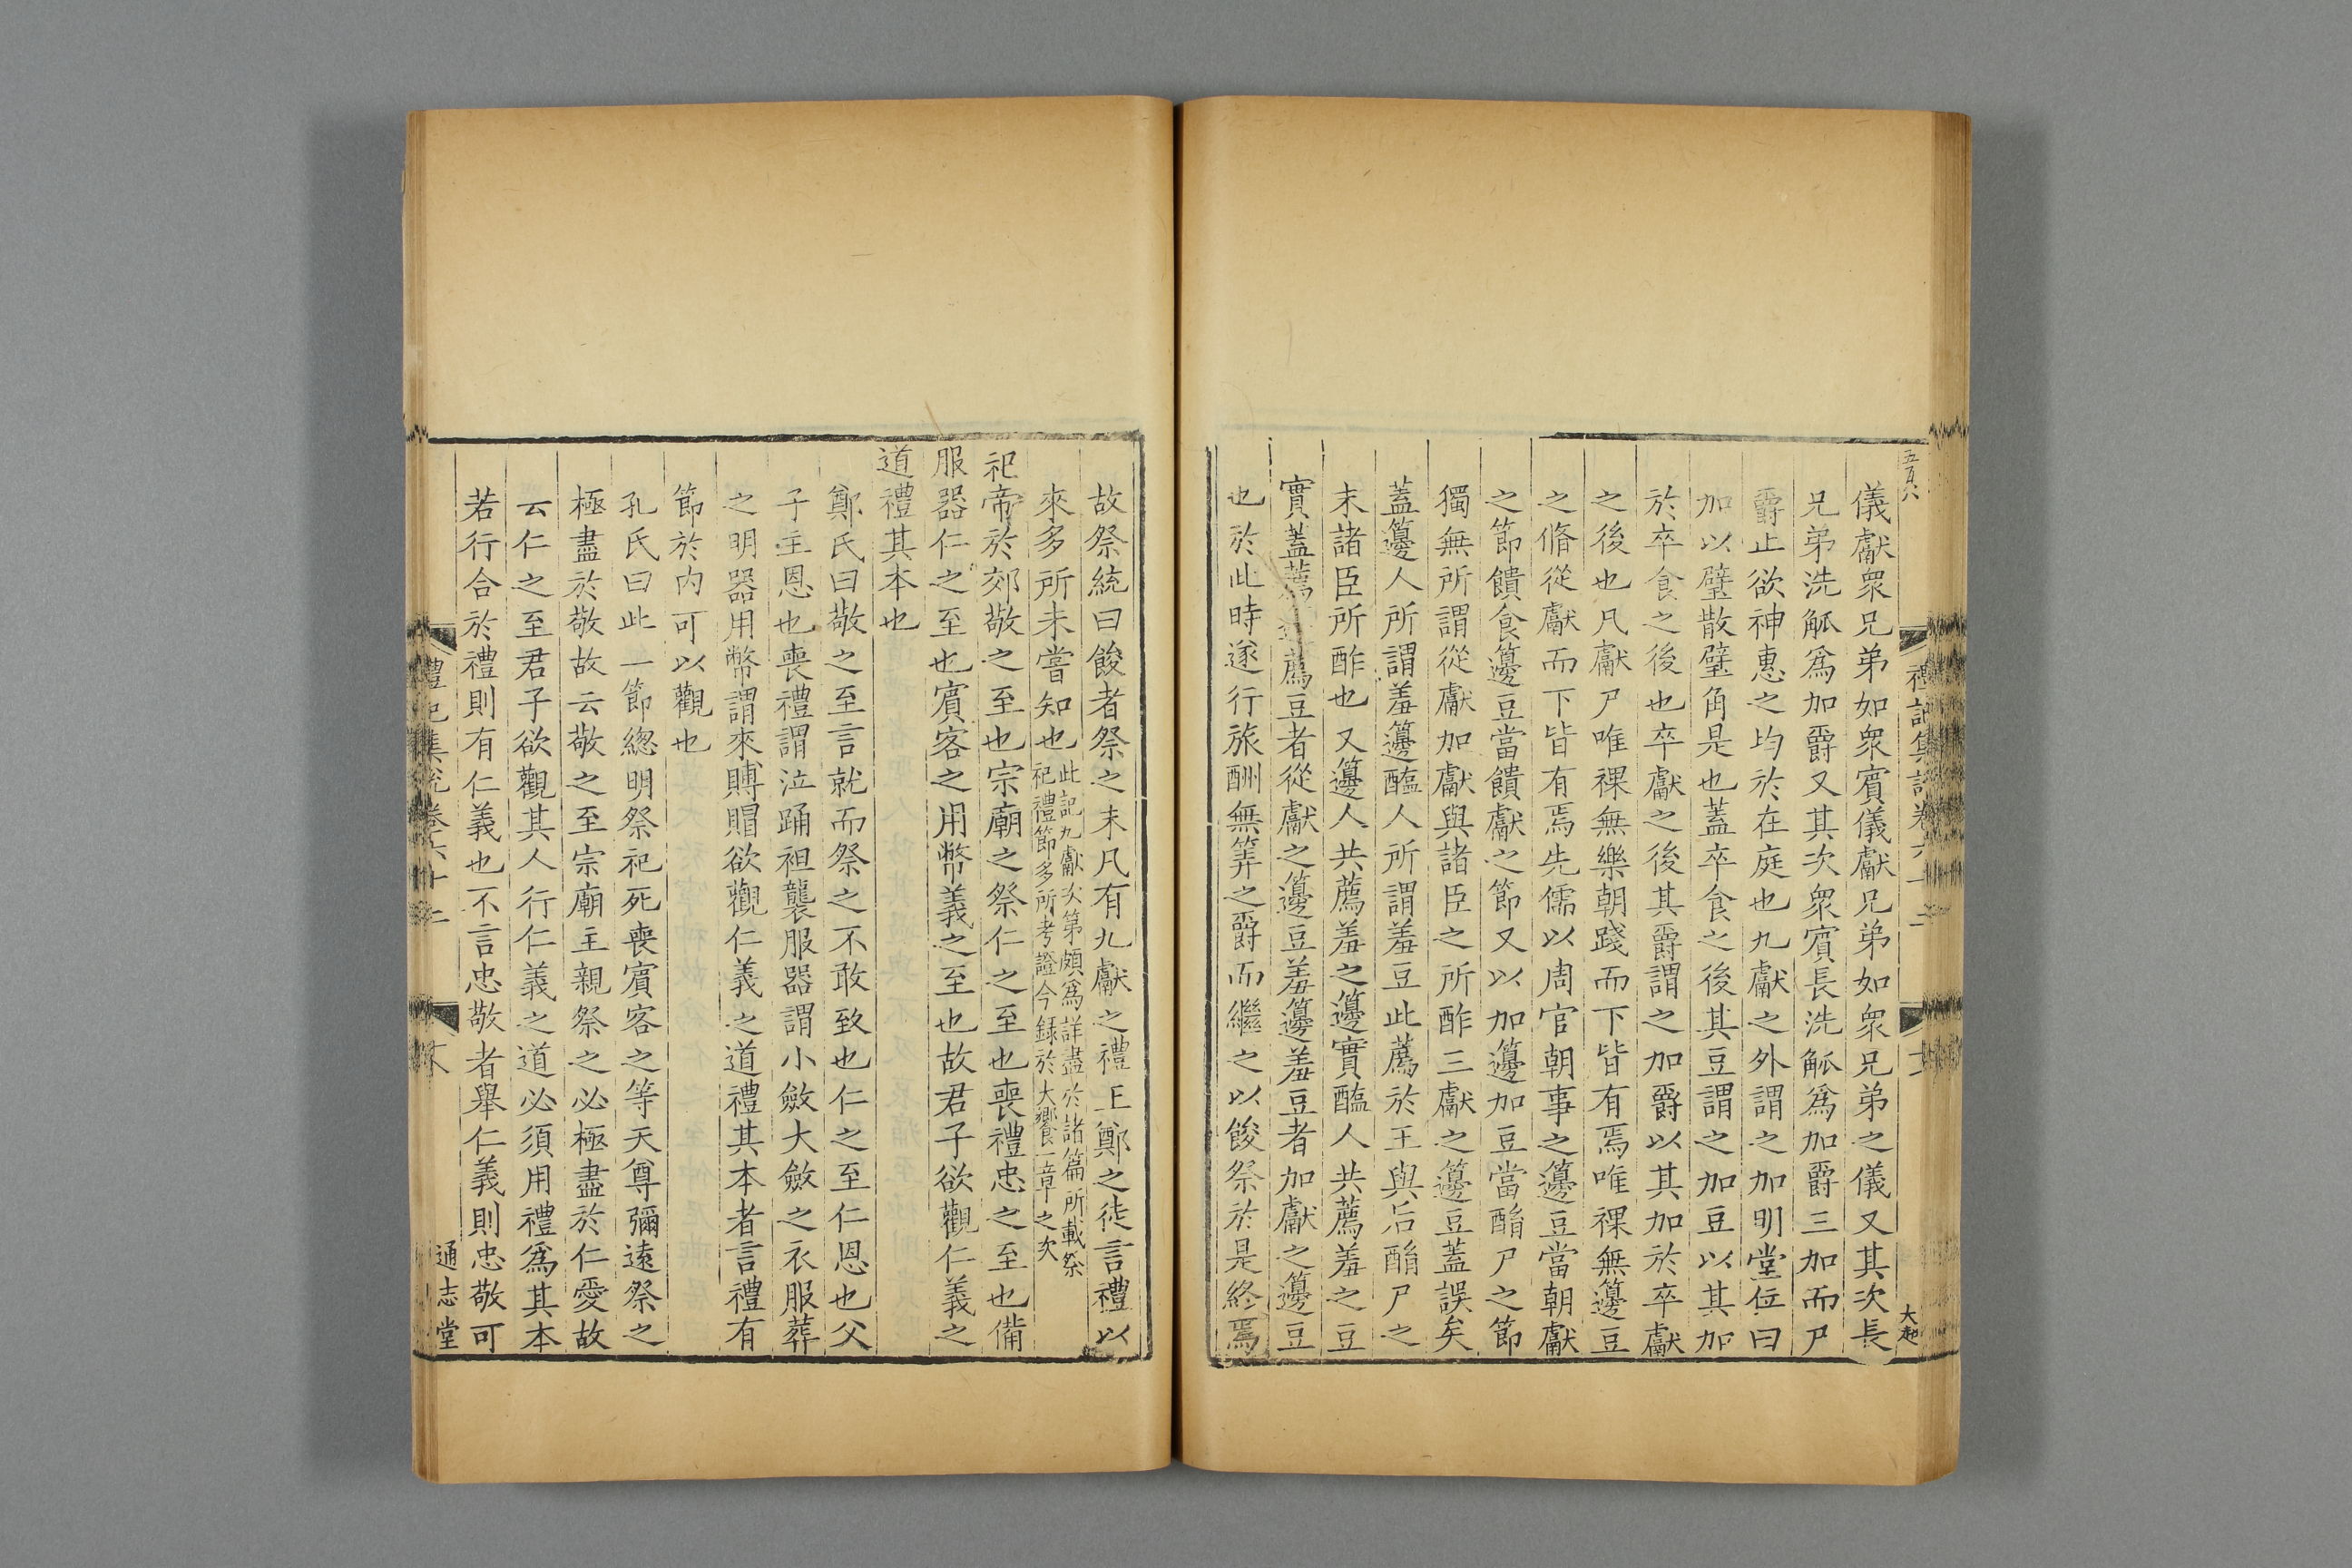 五百六
儀獻衆兄弟如衆賓儀獻兄弟如衆兄弟之儀又其次長
兄弟洗觚爲加爵又其次衆賓長洗觚爲加爵三加而尸
爵止欲神惠之均於在庭也九獻之外謂之加明堂位曰
加以璧散璧角是也蓋卒食之後其豆謂之加豆以其加
於卒食之後也卒獻之後其爵謂之加爵以其加於卒獻
之後也凡獻尸唯祼無樂朝踐而下皆有焉唯祼無籩豆
之脩從獻而下皆有焉先儒以周官朝事之籩豆當朝獻
之節饋食籩豆當饋獻之節又以加籩加豆當酳尸之節
獨無所謂從獻加獻與諸臣之所酢三獻之籩豆蓋誤矣
蓋籩人所謂羞籩醢人所謂羞豆此薦於王與后酳尸之
末諸臣所酢也又籩人共薦羞之籩實醢人共薦羞之豆
實蓋薦薦豆者從獻之籩豆羞籩羞豆者加獻之籩豆
也於此時遂行旅酬無筭之爵而繼之以餕祭於是終焉
故祭統曰餕者祭之末凡有九獻之禮上鄭之徒言禮以
來多所未嘗知也此記九獻次第頗爲詳盡於諸篇所載祭
祀禮節多所考證今録於大饗一章之次
祀帝於郊敬之至也宗廟之祭仁之至也喪禮忠之至也備
服器仁之至也賓客之用幣義之至也故君子欲觀仁義之
道禮其本也
鄭氏曰敬之至言就而祭之不敢致也仁之至仁恩也父
子主恩也喪禮謂泣踊袒襲服器謂小斂大斂之衣服葬
之明器用幣謂來賻賵欲觀仁義之道禮其本者言禮有
節於内可以觀也
孔氏曰此一節總明祭祀死喪賓客之等天尊彌遠祭之
極盡於敬故云敬之至宗廟主親祭之必極盡於仁愛故
云仁之至君子欲觀其人行仁義之道必須用禮爲其本
若行合於禮則有仁義也不言忠敬者舉仁義則忠敬可
禮記集說卷六十二
通志堂